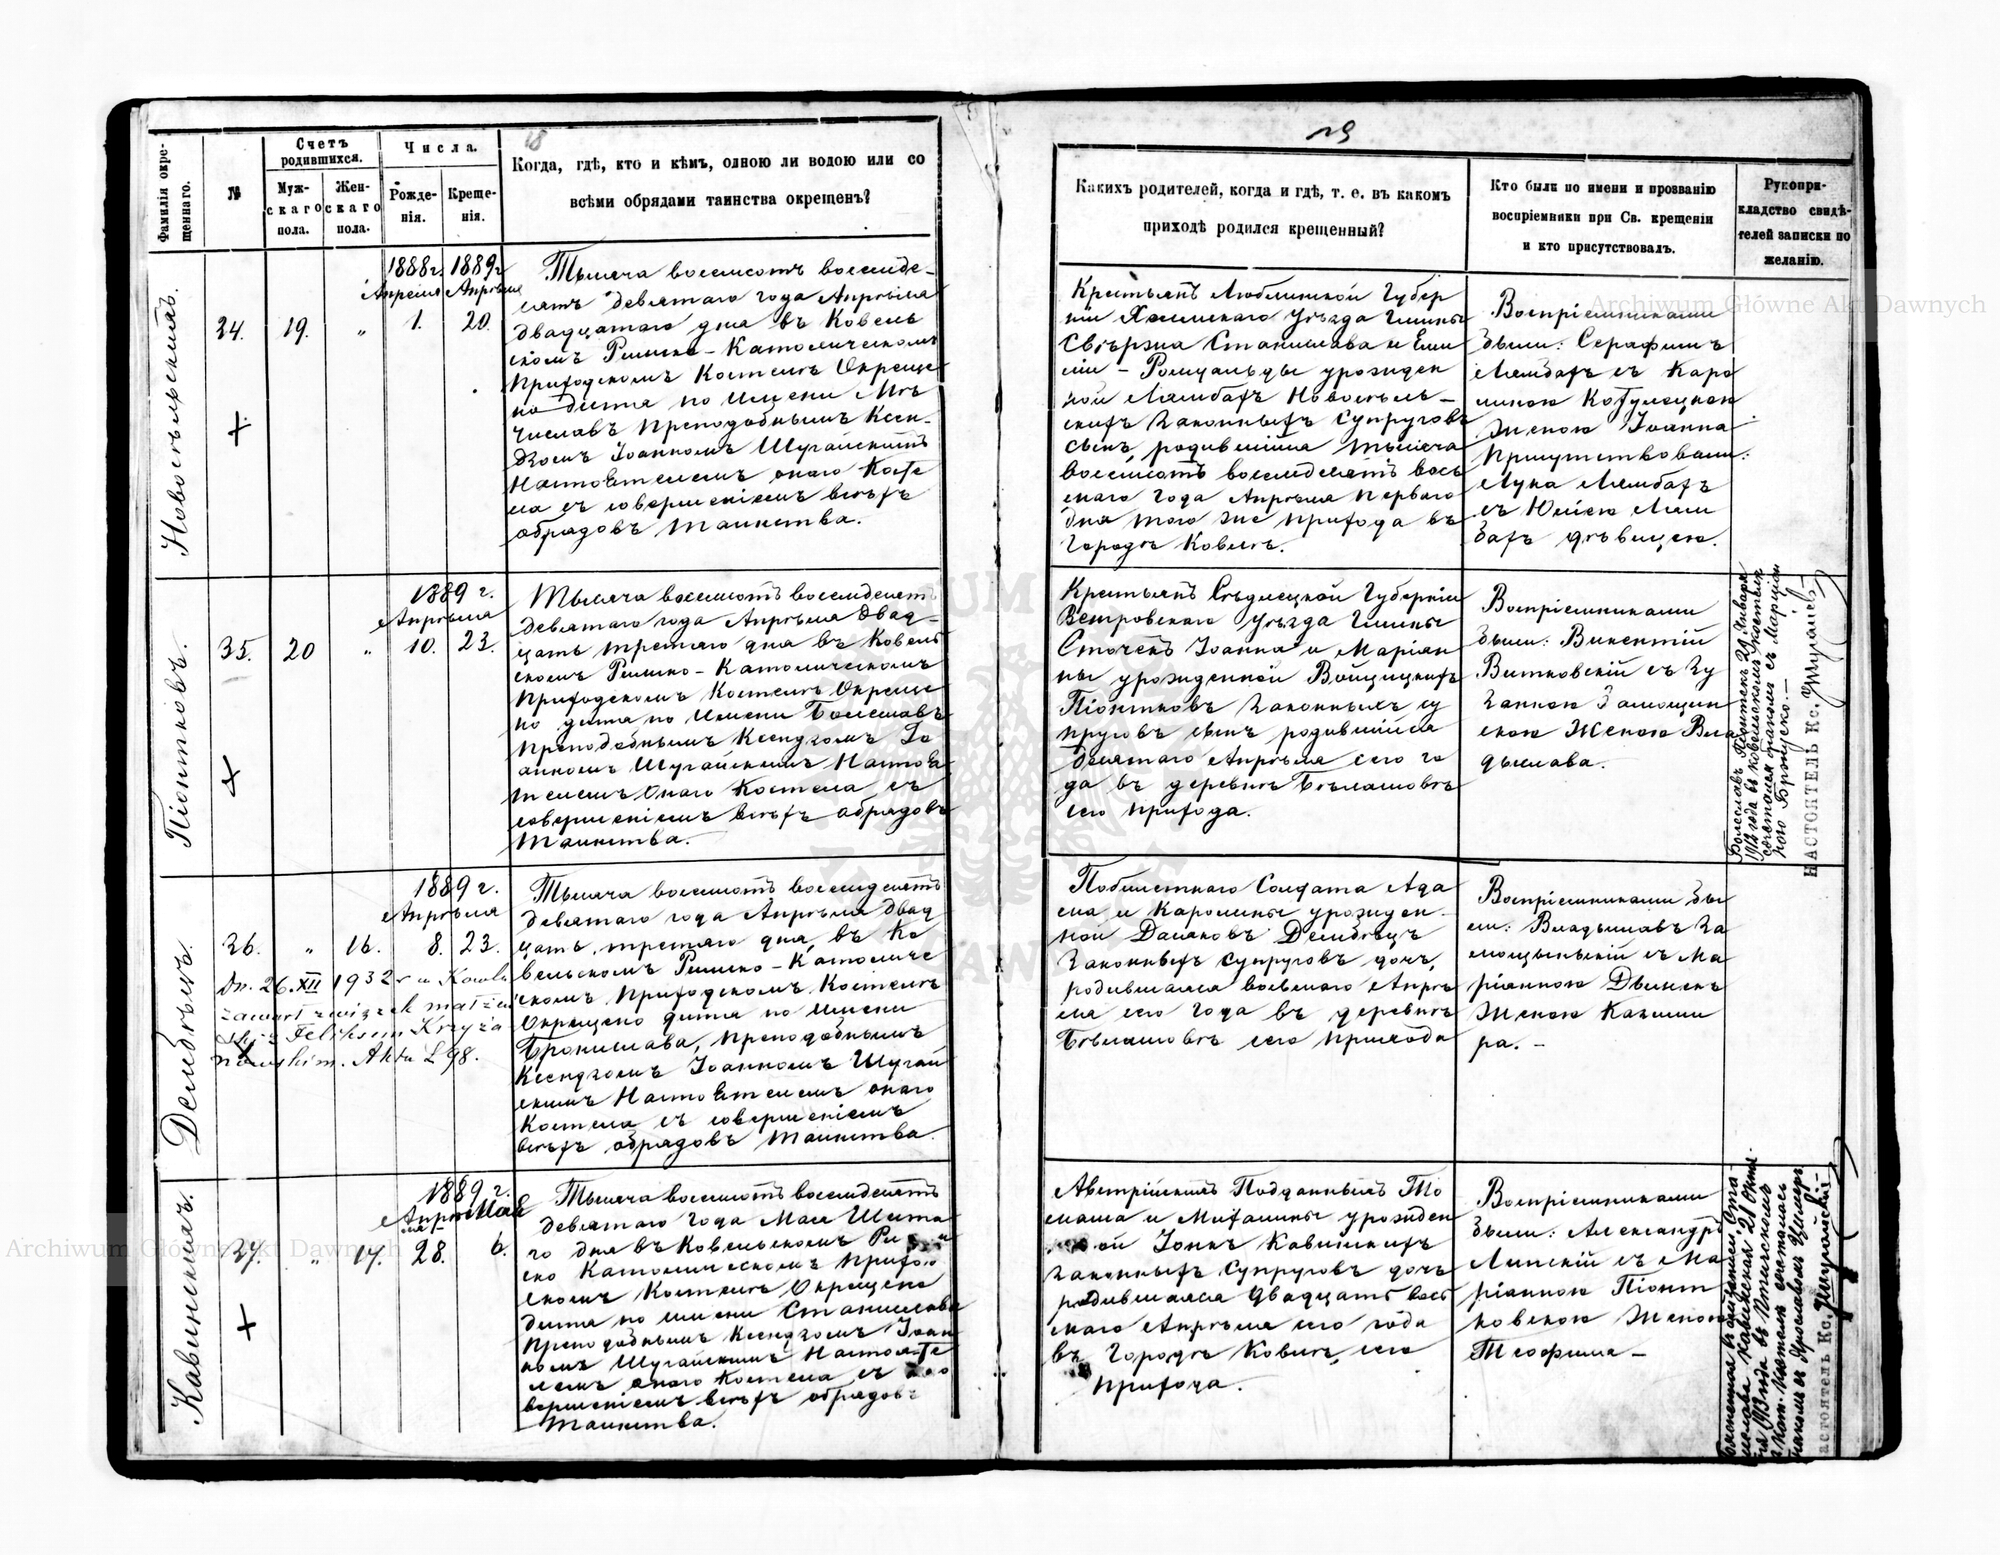 18
Фамилія окре-
щеннаго.
№
Счетъ
родившихся.
Муж-
скаго
пола.
Жен-
скаго
пола.
Числа.
Рожде-
нія.
Креще-
нія.
Когда, гдѣ, кто и кѣмъ, одною ли водою или со
всѣми обрядами таинства окрещенъ?
Новосѣльскій
34.
19.
"
1888 г.
Апрѣля
1.
1889 г.
Апрѣля
20.
Тысяча восемсотъ восемде-
сятъ девятаго года Апрѣля
двадцатаго дня въ Ковель
скомъ Римско-Католическомъ
Приходскомъ Костелѣ Окреще
но дитя по имени Мѣ
числавъ Преподобнымъ Ксен-
дзомъ Іоанномъ Шугайскимъ
Настоятелемъ онаго Косте
ла съ совершеніемъ всѣхъ
обрядовъ Таинства.
Піонтковъ.
35.
20
"
1889 г.
Апрѣля
10.
23.
Тысяча восемсотъ восемдесятъ
девятаго года Апрѣля двад-
цать третьяго дня въ Ковель
скомъ Римско-Католическомъ
Приходскомъ Костелѣ Окреще
но дитя по Имени Болеславъ
Преподобнымъ Ксендзомъ Іо
анномъ Шугайскимъ Настоя
телемъ Онаго Костела съ
совершеніемъ всѣхъ обрядовъ
Таинства.
36.
"
16.
1889 г.
Апрѣля
8.
23.
Dn. 26.XII 1932 r w Kowlu
zawarł związek małżeń
ski z Feliksem Krzyża
nowskim. Akta L 98.
Тысяча восемсотъ восемдесятъ
девятаго года Апрѣля двад
цать третяго дня, въ Ко
вельскомъ Римско-Католиче
скомъ Приходскомъ Костелѣ
Окрещено дитя по имени
Бронислава, Преподобнымъ
Ксендзомъ Іоанномъ Шугай
скимъ Настоятелемъ онаго
Костела съ совершеніемъ
всѣхъ обрядовъ Таинства.
Кавинскихъ.
37.
"
17.
1889 г.
Апрѣля
28.
Мая
6.
Тысяча восемсотъ восемдесятъ
девятаго года Мая Шеста
го дня въ Ковельскомъ
ско Католическомъ Приход
скомъ Костелѣ Окрещено
дитя по имени Станислава
Преподобнымъ Ксендзомъ Іоан
номъ Шугайскимъ Настояте
лемъ онаго Костела съ
вершеніемъ всѣхъ обрядовъ
Таинства.
Какихъ родителей, когда и гдѣ, т. е. въ какомъ
приходѣ родился крещенный?
Кто были по имени и прозванію
воспріемники при Св. крещеніи
и кто присутствовалъ.
Рукопри-
кладство свидѣ-
телей записки по
желанію.
Крестьянъ Люблинской Губер
ніи Холмскаго Уѣзда Гмины
Свержа Станислава и Эми
ліи - Ромуальды урожден
ной Лямбахъ Новосѣль-
скихъ Законныхъ Супруговъ
сынъ, родившійся тысяча
восемсотъ восемдесятъ вось
маго года Апрѣля Перваго
дня того же прихода въ
Городѣ Ковелѣ.
Воспріемниками
были: Серафимъ
Лямбахъ съ Каро
линою
Женою Іоанна
Присутствовали:
Лука Лямбахъ
съ Юліею Лям
бахъ дѣвицею.
Крестьянъ Сѣдлецкой Губерніи
Венгровскаго Уѣзда Гмины
Сточекъ Іоанна и Маріан
ны урожденной Войцицкихъ
Піонтковъ Законныхъ су
пруговъ сынъ родившійся
десятаго Апрѣля сего го
да въ деревнѣ Бѣлашовѣ
сего прихода.
Воспріемниками
были: Викентій
Витковскій съ Зу
занною Замощин
скою Женою Вла
дыслава.
Болеславъ Піонтекъ 29 Января
1912 года въ Ковельскомъ костелѣ
сочетался бракомъ съ Маріан
ною
НАСТОЯТЕЛЬ Кс.
Побилетнаго Солдата Ада
ма и Каролины урожден-
ной
Законныхъ Супруговъ дочь,
родившаяся восьмаго Апрѣ
ля сего года въ деревнѣ
Бѣлашовѣ сего прихода
Воспріемниками бы
ли: Владыславъ За
мощынскій съ Ма
ріанною
Женою Казими
ра. -
Австрійскихъ Подданныхъ То
маша и Михалины урожден
ной Іонкъ Кавинскихъ
Законныхъ Супруговъ дочь
родившаяся двадцать вось
маго Апрѣля сего года
въ Городѣ Ковелѣ, сего
прихода.
Воспріемниками
были: Александръ
Липскій съ Ма
ріанною Піонт
ковскою Женою
Теофила -
Настоятель Кс.
Archiwum Główne Akt Dawnych
Archiwum Główne Akt Dawnych